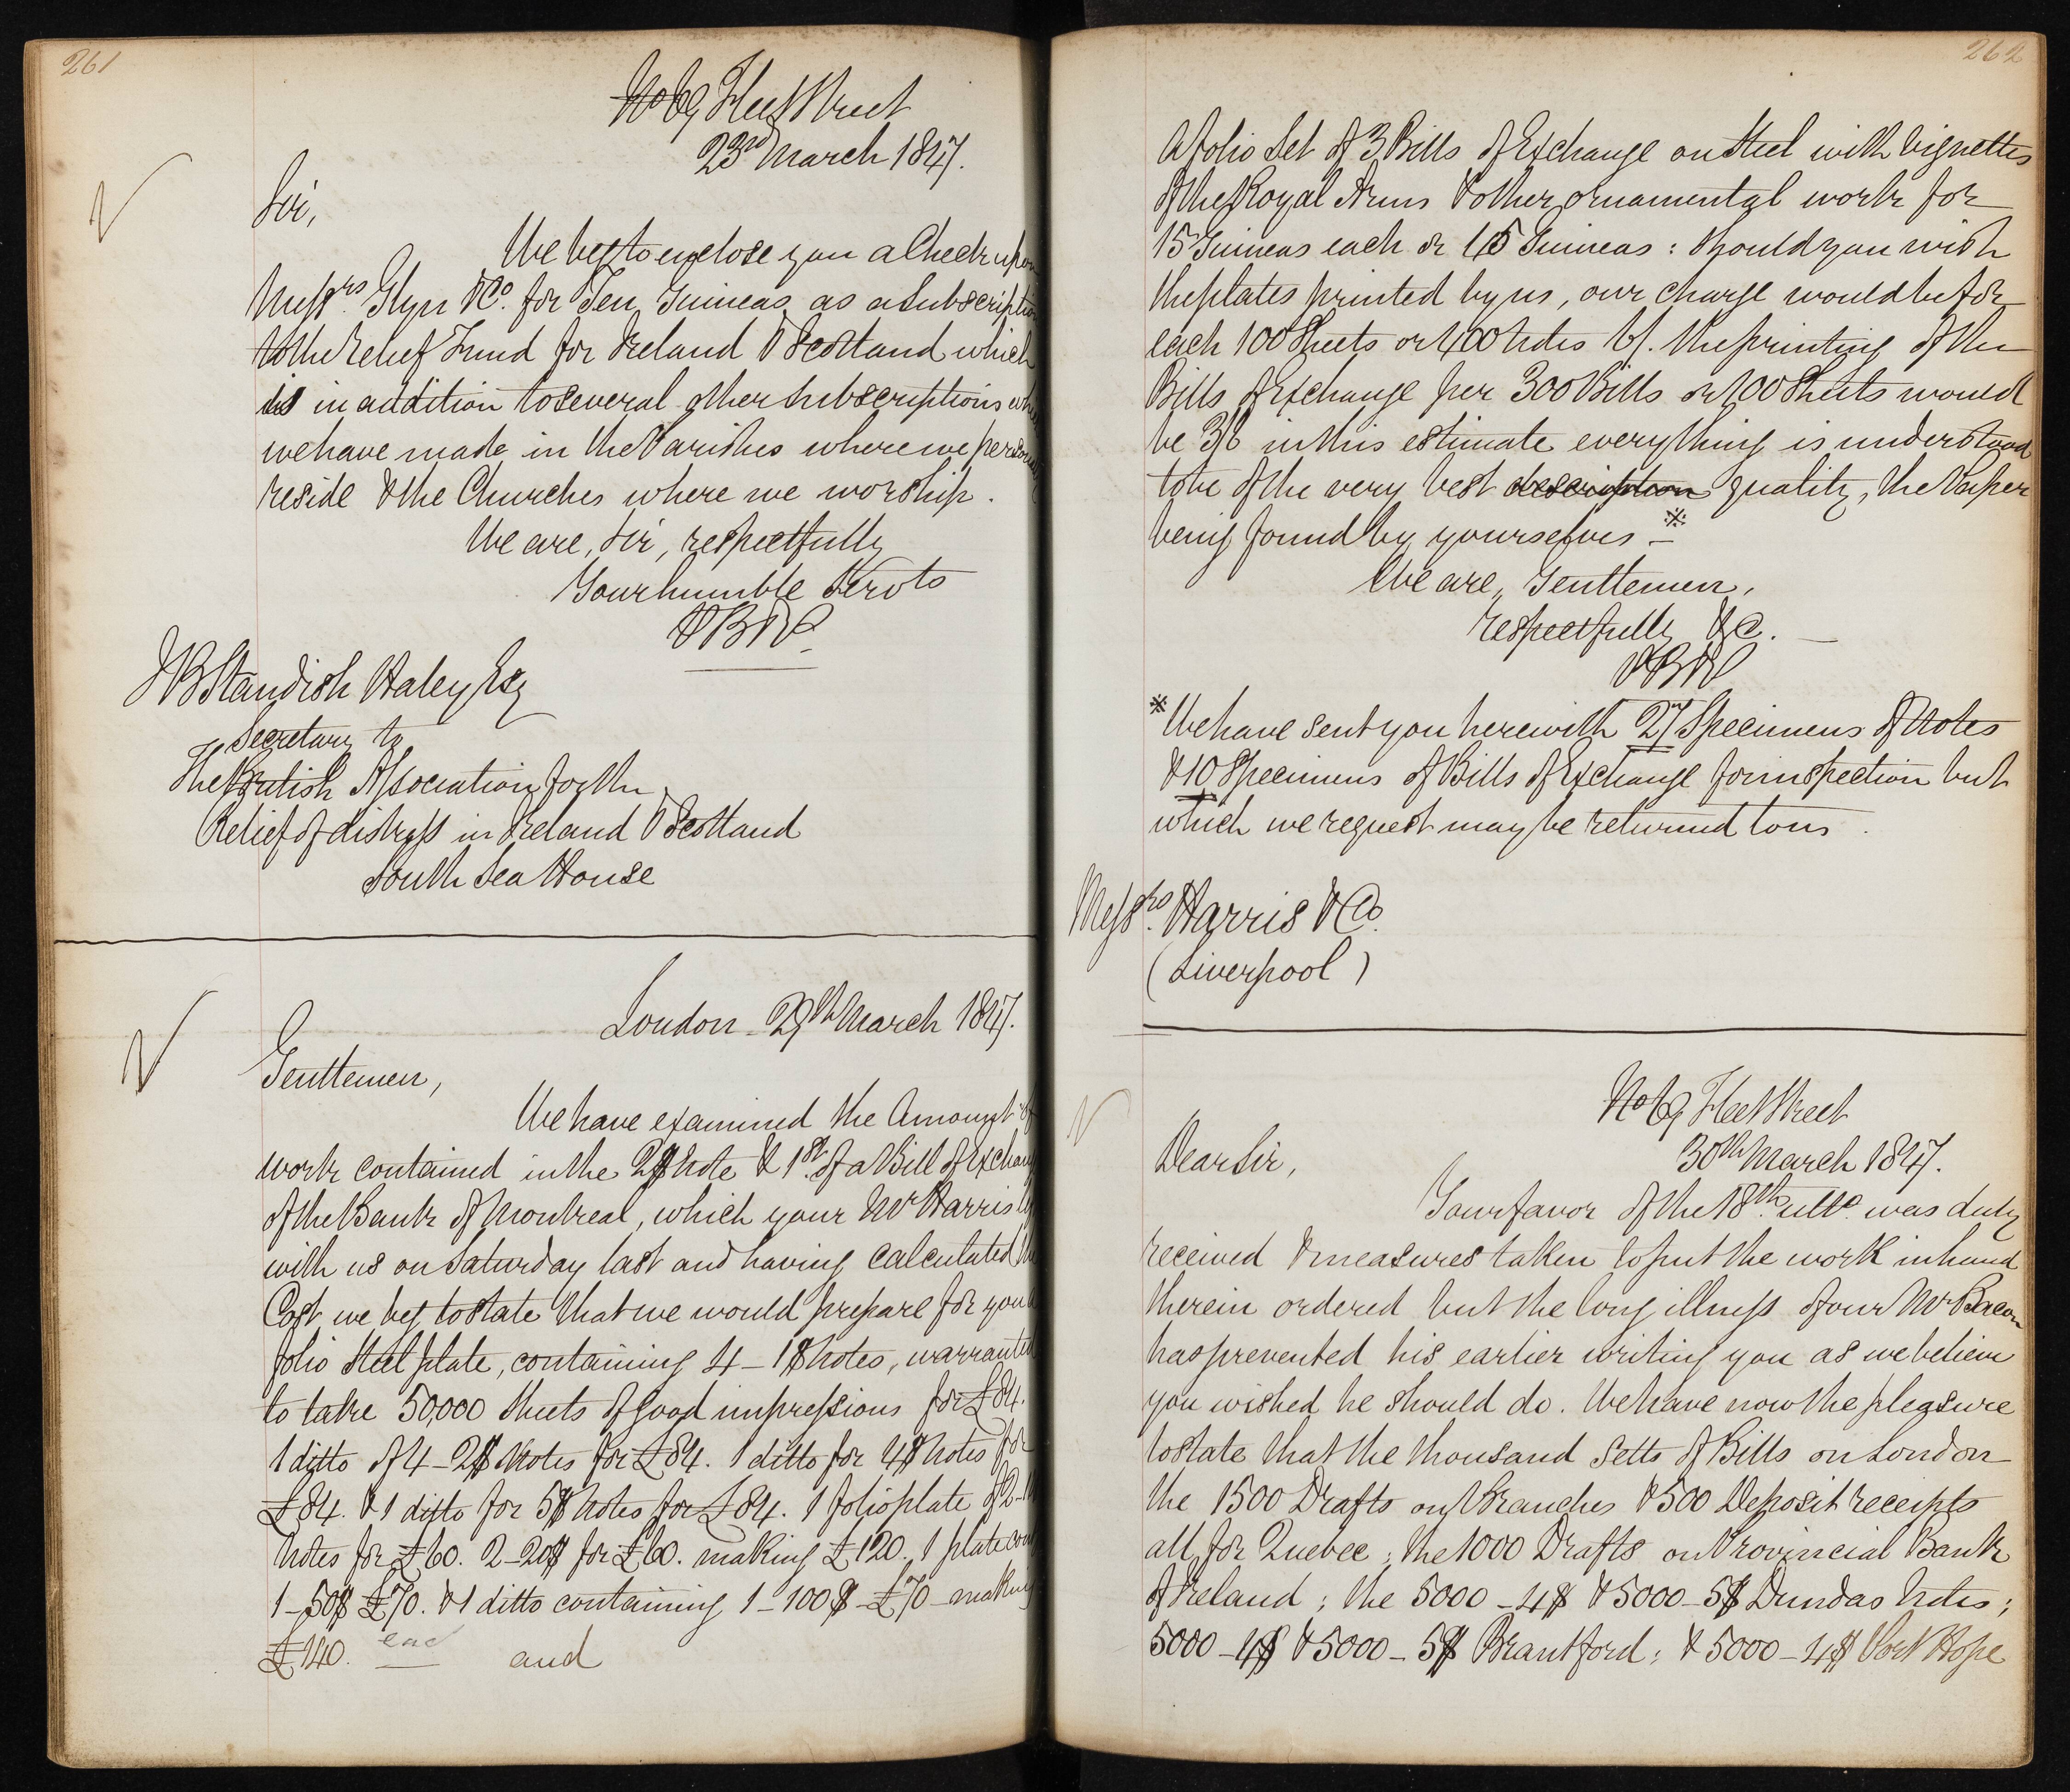 261
No 69 Fleet Street
23rd March 1847.
Sir,
We beg to enclose you a Check upon
Messrs. Glyn & Co. for Ten Guineas as a Subscription
to the relief Fund for Ireland & Scotland which
is in addition to several other subscriptions
we have made in the Parishes where we
reside & the Churches where we worship.
We are, Sir, respectfully
Your humble Servts
PB&P
J B Standish Haley Esq
Secretary to
The British Association for the
Relief of distress in Ireland & Scotland
South Sea House
London - 29th March 1847.
Gentlemen,
We have examined the Amount of
work contained in the 2$ Note & 1st of a Bill of
of the Bank of Montreal, which your Mr Harris
with us on Saturday last and having calculated the
Cost we beg to state that we would prepare for you
folio Steel plate, containing 4 - 1$ Notes, warranted
to take 50,000 sheets of good impressions for £84.
1 ditto of 4 - 2$ Notes for £84. 1 ditto for 4$ Notes for
£84. & 1 ditto for 5$ Notes for £84. 1 folio plate of
Notes for £60. 2 - 20$ for £60. making £120. 1 plate
1 - 50$ £70. & 1 ditto containing 1 - 100$ - £70 - making
£140. and
262
A folio Set of 3 Bills of Exchange on Steel with Vignettes
of the Royal Arms & other ornamental work for
15 Guineas each or 45 Guineas: Should you wish
the plates printed by us, our charge would be for
each 100 Sheets or 400 Notes the printing of the
Bills of Exchange per 300 Bills or 100 Sheets would
be 3/6 in this estimate everything is understood
to be of the very best description quality, the Paper
being found by yourselves - ※
We are, Gentlemen,
respectfully &c. -
PB&P
※ We have sent you herewith 27 Specimens of Notes
& 10 Specimens of Bills of Exchange for inspection but
which we request may be returned to us.
Messrs. Harris & Co.
(Liverpool)
No 69 Fleet Street
30th March 1847.
Dear Sir,
Your favor of the 18th ulto. was duly
received & measures taken to put the work in hand
therein ordered but the long illness of our Mr Bacon
has prevented his earlier writing you as we believe
you wished he should do. We have now the pleasure
to state that the thousand Setts of Bills on London
the 1500 Drafts on Branches & 500 Deposit receipts
all for Quebec; the 1000 Drafts on Provincial Bank
of Ireland; the 5000 - 4$ & 5000 - 5$ Dundas Notes;
5000 - 4$ & 5000 - 5$ Brantford; & 5000 - 4$ Port Hope